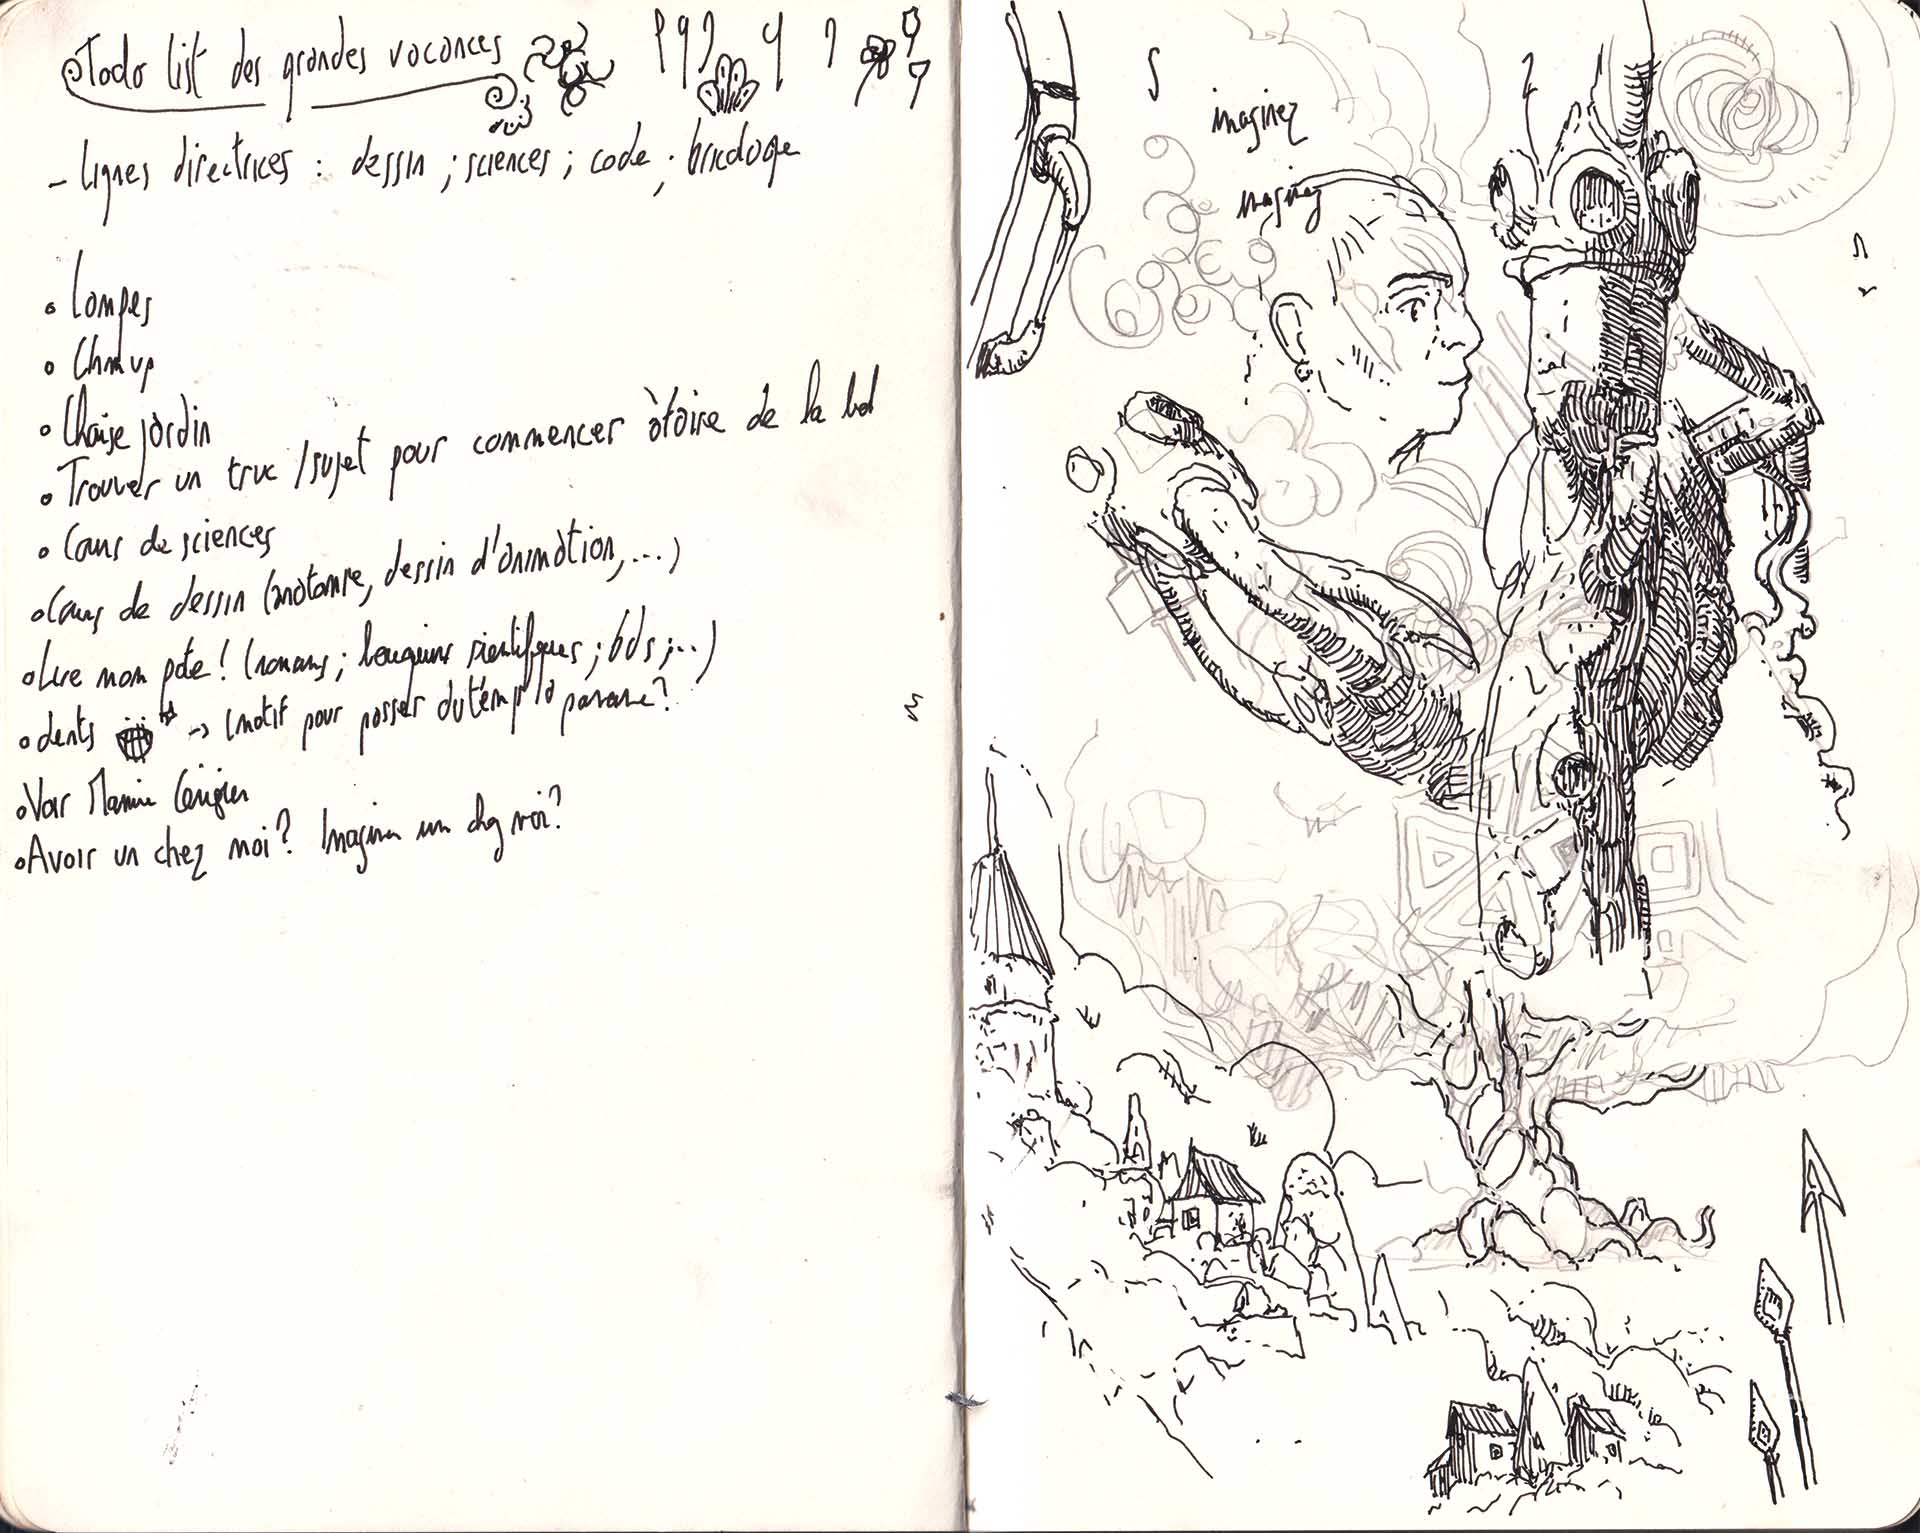 Todo list des grandes vacances
- Lignes directrices : dessin ; sciences ; code ; bricolage
• Lampes
• Chaise jardin
• Trouver un truc / sujet pour commencer de la bd
• Cours de sciences
• Cours de dessin (anatomie, dessin d'animation, ...)
• Lire mon pote ! (romans ; bouquins scientifiques ; bds ; ...)
• dents -> (motif pour passer du temps à
• Voir Mamie
• Avoir un chez moi ? Imaginer un chez moi ?
imaginez
imaginez